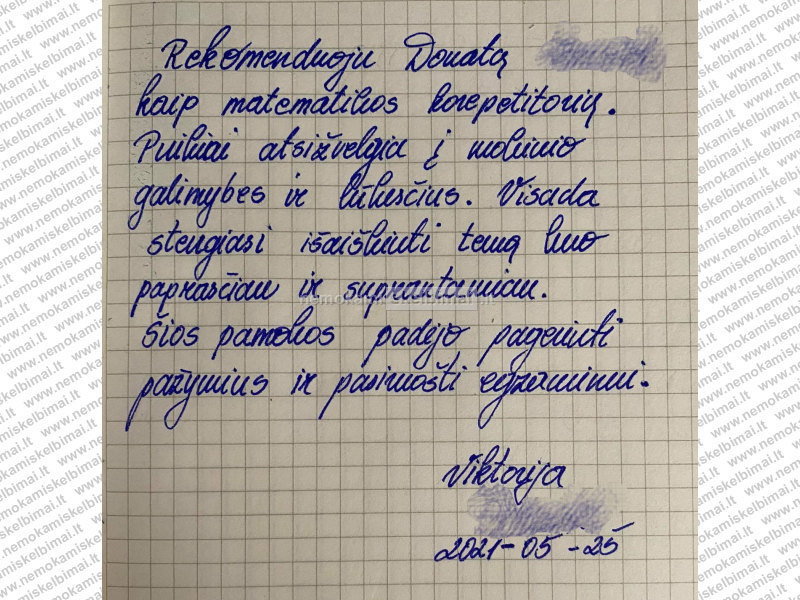 Rekomenduoju Donatą
kaip matematikos korepetitorių.
Puikiai atsižvelgia į mokinio
galimybes ir lūkesčius. Visada
stengiasi išaiškinti temą kuo
paprasčiau ir suprantamiau.
Šios pamokos padėjo pagerinti
pažymius ir pasiruošti egzaminui.
Viktorija
2021-05-25